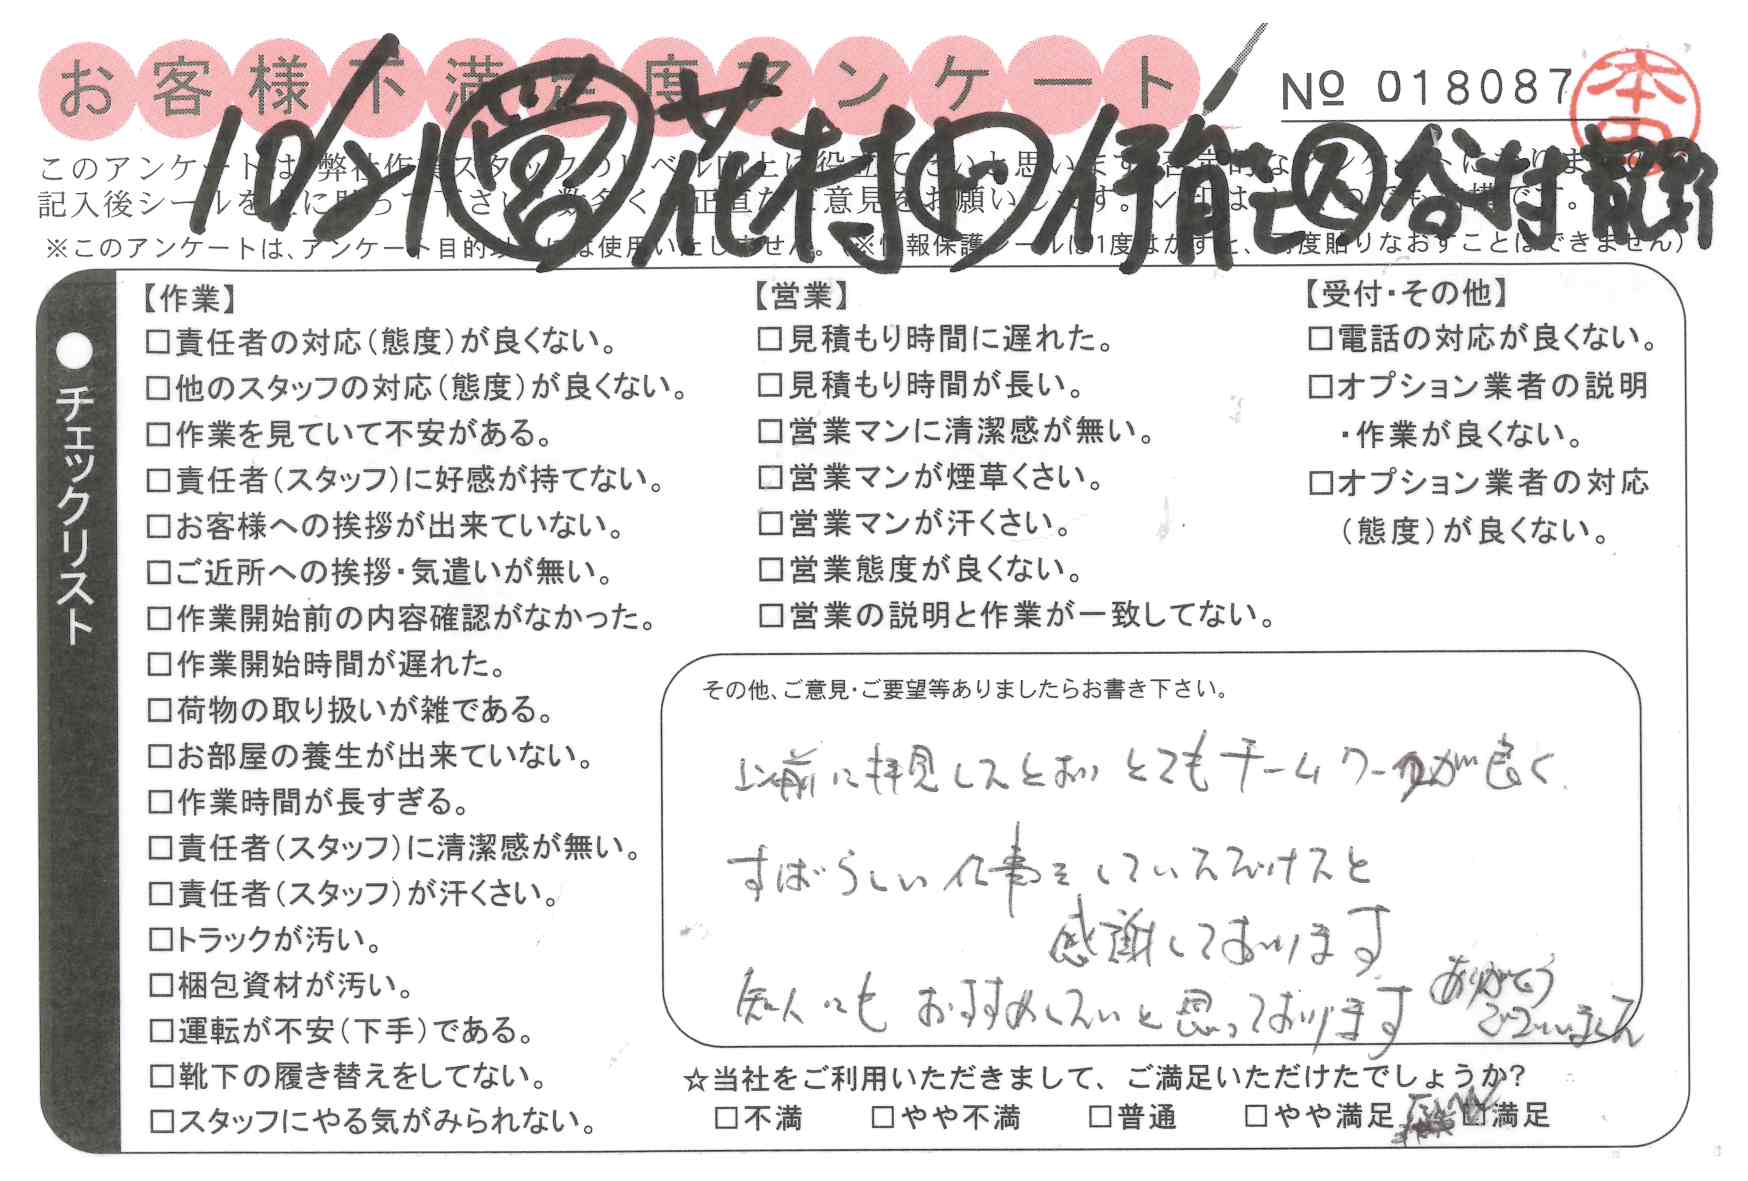 お客様不満足度アンケート
No 018087
10/21 営 花村 伊能 ス 谷村
※このアンケートは、アンケート目的以外には使用いたしません。(※情報保護シールは1度はがすと、再度貼りなおすことはできません)
チェックリスト
【作業】
□責任者の対応(態度)が良くない。
□他のスタッフの対応(態度)が良くない。
□作業を見ていて不安がある。
□責任者(スタッフ)に好感が持てない。
□お客様への挨拶が出来ていない。
□ご近所への挨拶・気遣いが無い。
□作業開始前の内容確認がなかった。
□作業開始時間が遅れた。
□荷物の取り扱いが雑である。
□お部屋の養生が出来ていない。
□作業時間が長すぎる。
□責任者(スタッフ)に清潔感が無い。
□責任者(スタッフ)が汗くさい。
□トラックが汚い。
□梱包資材が汚い。
□運転が不安(下手)である。
□靴下の履き替えをしてない。
□スタッフにやる気がみられない。
【営業】
□見積もり時間に遅れた。
□見積もり時間が長い。
□営業マンに清潔感が無い。
□営業マンが煙草くさい。
□営業マンが汗くさい。
□営業態度が良くない。
□営業の説明と作業が一致してない。
【受付・その他】
□電話の対応が良くない。
□オプション業者の説明
・作業が良くない。
□オプション業者の対応
(態度)が良くない。
その他、ご意見・ご要望等ありましたらお書き下さい。
以前に拝見したとおり とてもチームワークが良く
すばらしい仕事をしていただけたと
感謝しております
知人にも おすすめしたいと思っております
ありがとう
ございました
☆当社をご利用いただきまして、ご満足いただけたでしょうか?
□不満 □やや不満 □普通 □やや満足 □満足